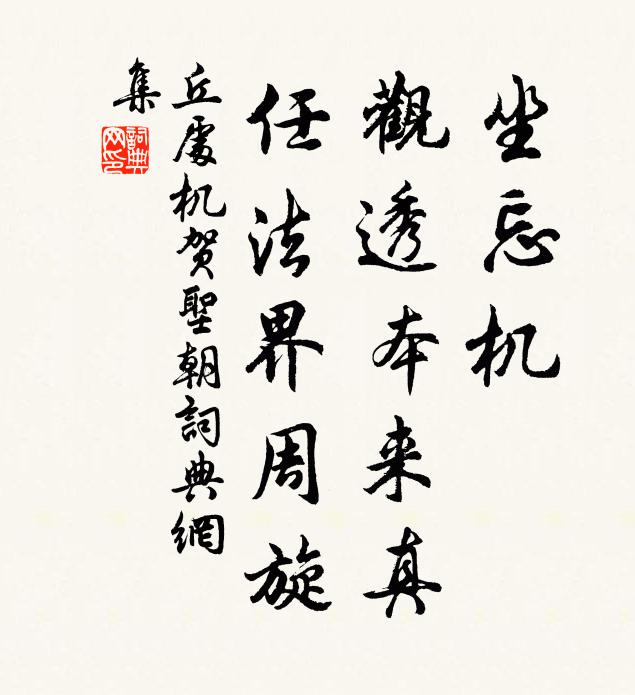 坐忘机
觀透本来真
任法界周旋
丘處机贺聖朝詞典網
集
詞典網印